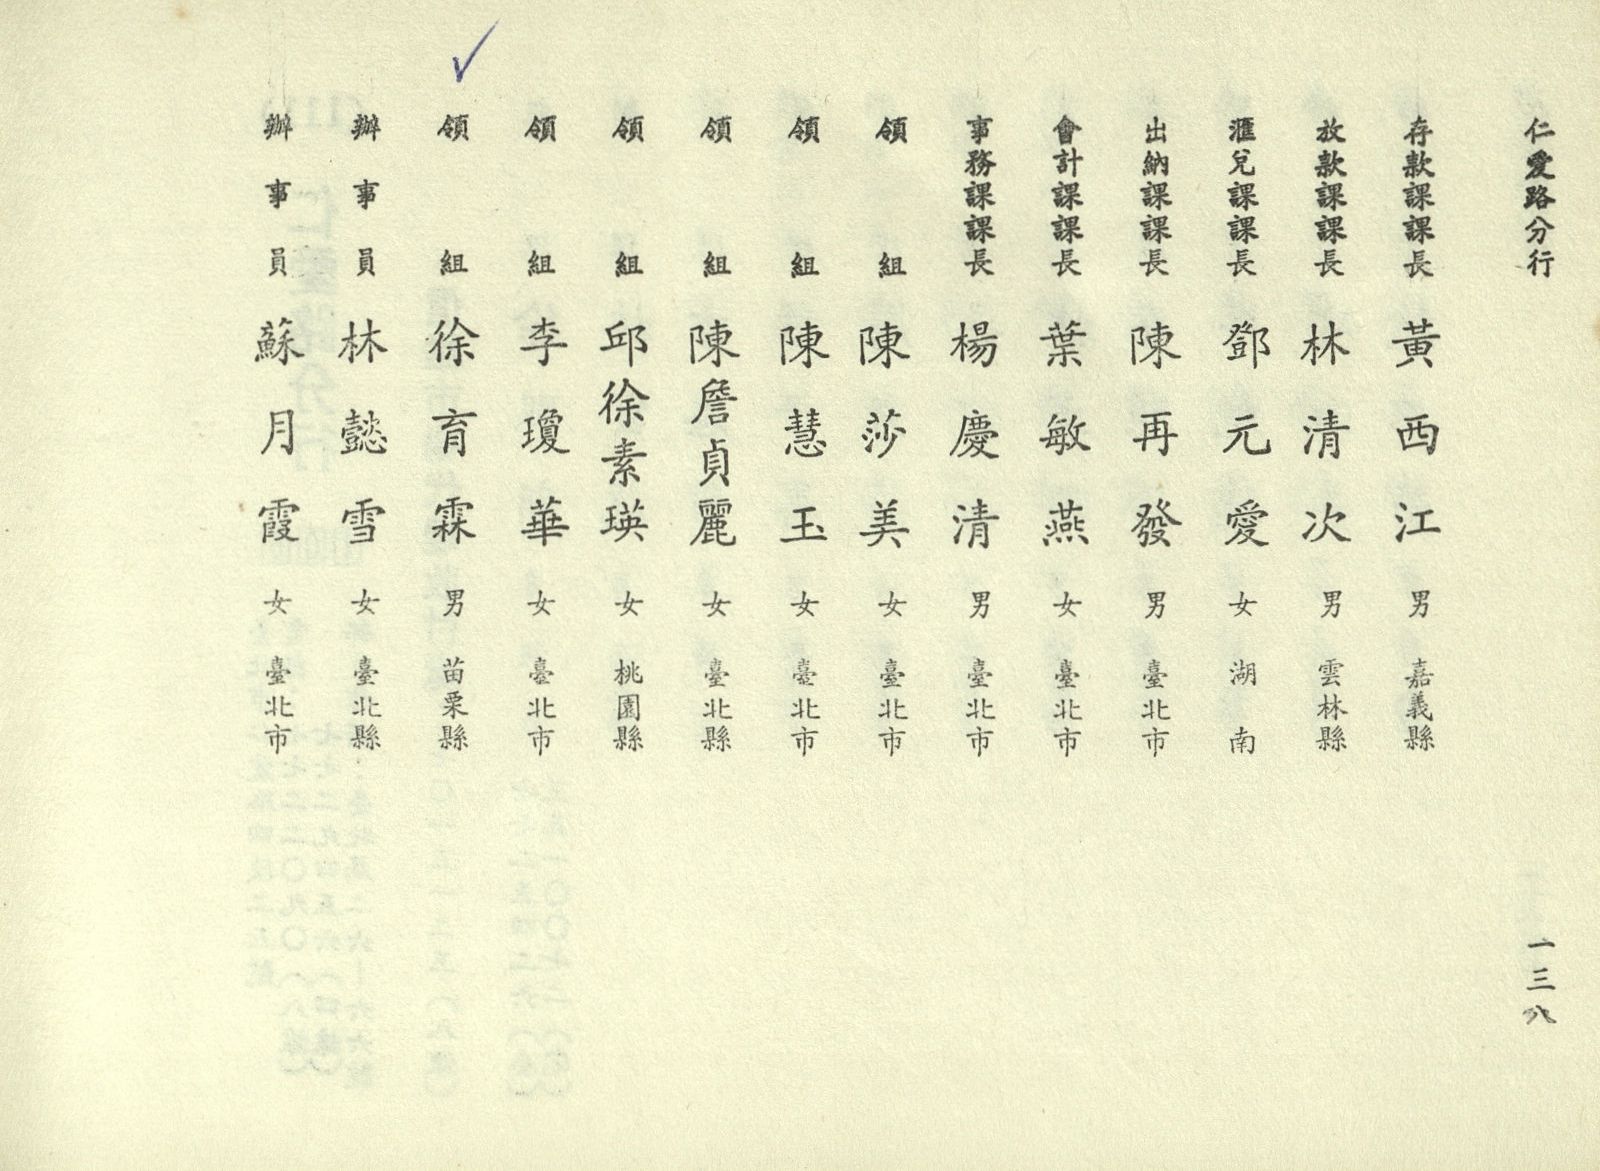 仁愛路分行
存款課課長 黃西江 男 嘉義縣
放款課課長 林清次 男 雲林縣
滙兌課課長 鄧元愛 女 湖南
出納課課長 陳再發 男 臺北市
會計課課長 葉敏燕 女 臺北市
事務課課長 楊慶清 男 臺北市
領組 陳莎美 女 臺北市
領組 陳慧玉 女 臺北市
領組 陳詹貞麗 女 臺北縣
領組 邱徐素瑛 女 桃園縣
領組 李瓊華 女 臺北市
領組 徐育霖 男 苗栗縣
辦事員 林懿雪 女 臺北縣
辦事員 蘇月霞 女 臺北市
一三八